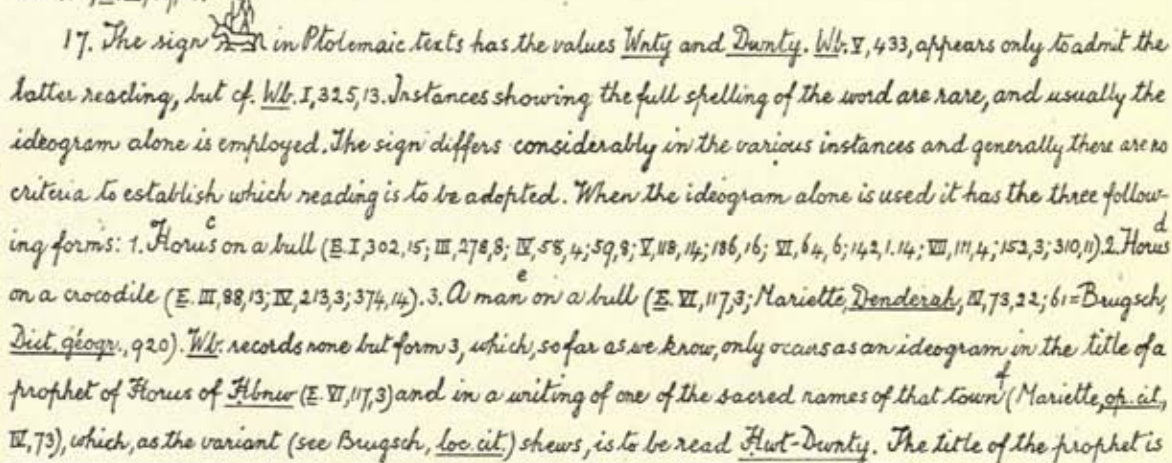 17. The sign in Ptolemaic texts has the values Wnty and Dwnty. Wb. V, 433, appears only to admit the
latter reading, but cf. Wb. I, 325, 13. Instances showing the full spelling of the word are rare, and usually the
ideogram alone is employed. The sign differs considerably in the various instances and generally there are no
criteria to establish which reading is to be adopted. When the ideogram alone is used it has the three follow-
ing forms: 1. Horus c on a bull (E. I, 302, 15; III, 278, 8; IV, 58, 4; 59, 8; V, 118, 14; 186, 16; VI, 64, 6; 142, 1. 14; VII, 111, 4; 152, 3; 310, 11). 2. Horus d
on a crocodile (E. III, 88, 13; IV, 213, 3; 374, 14). 3. A man e on a bull (E. VI, 117, 3; Mariette, Denderah, IV, 73, 22; 61 = Brugsch,
Dict. géogr., 920). Wb. records none but form 3, which, so far as we know, only occurs as an ideogram in the title of a
prophet of Horus of Hbnw (E. VI, 117, 3) and in a writing of one of the sacred names of that town f (Mariette, op. cit.,
IV, 73), which, as the variant (see Brugsch, loc. cit.) shews, is to be read Hwt-Dwnty. The title of the prophet is